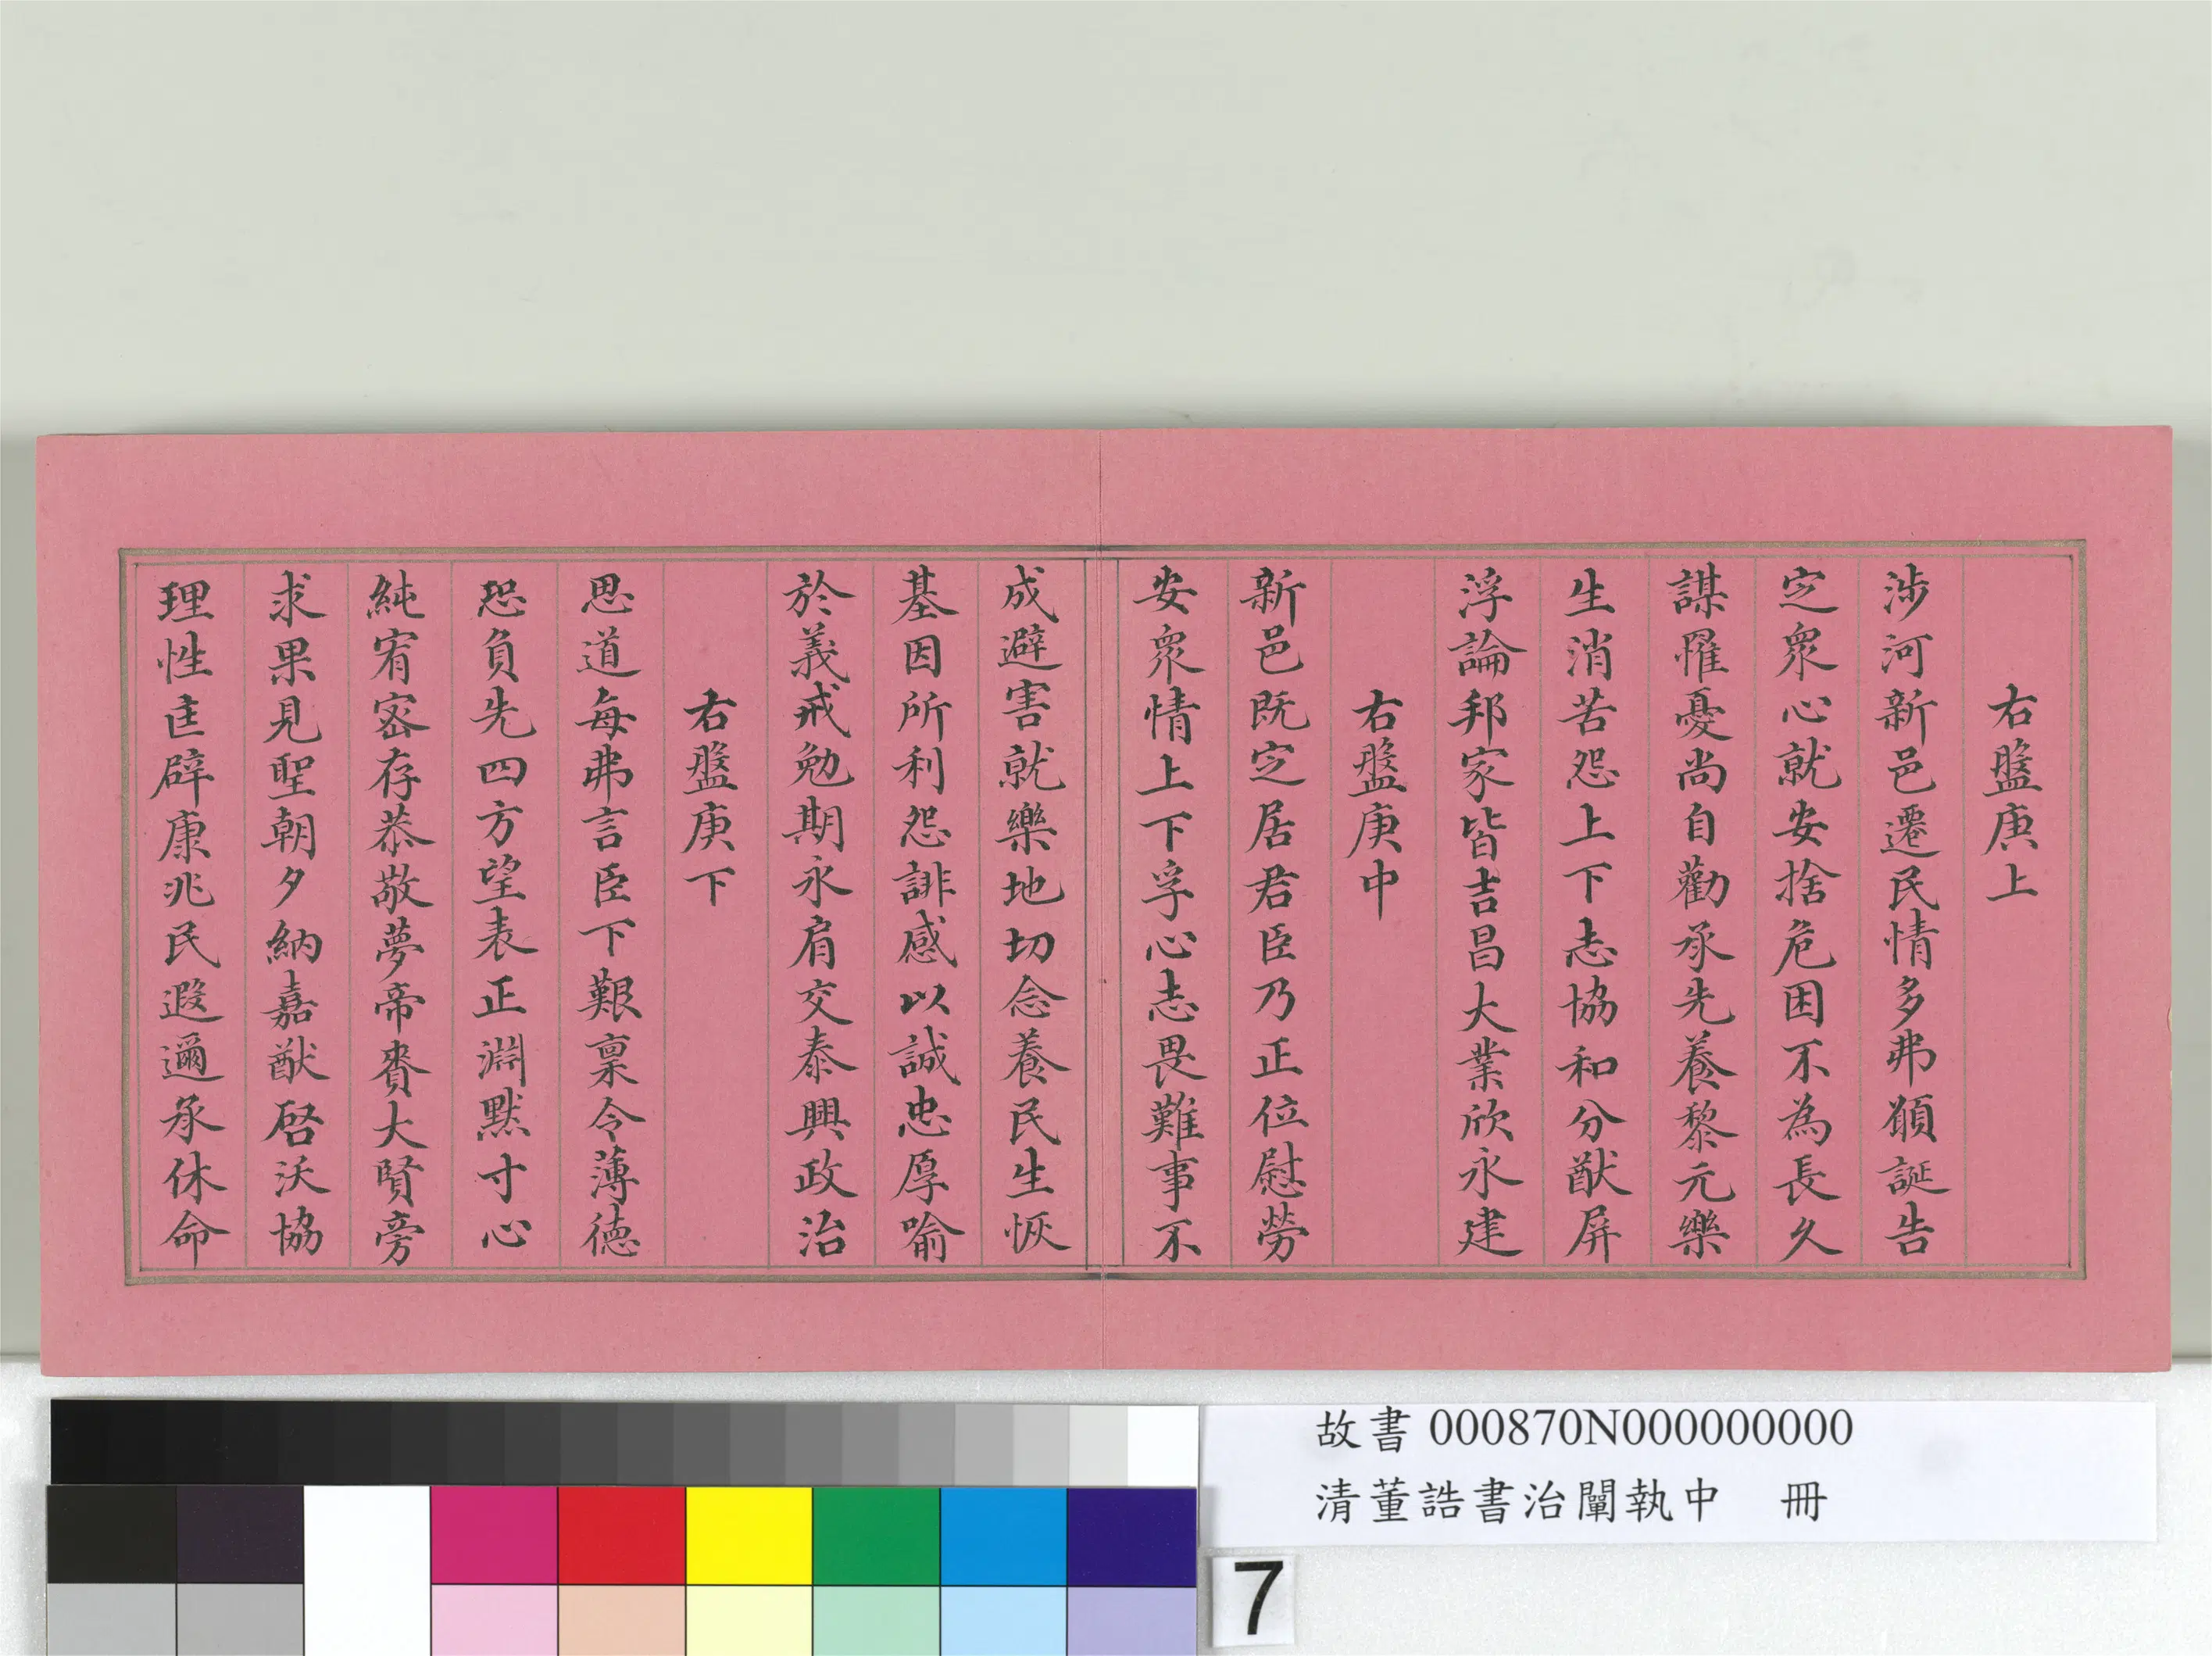 右盤庚上
涉河新邑遷民情多弗願誕告
定衆心就安捨危困不為長久
謀罹憂尚自勸承先養黎元樂
生消苦怨上下志協和分猷屏
浮論邦家皆吉昌大業欣永建
右盤庚中
新邑既定居君臣乃正位慰勞
安衆情上下孚心志畏難事不
成避害就樂地切念養民生恢
基因所利怨誹感以誠忠厚喻
於義戒勉期永肩交泰興政治
右盤庚下
思道每弗言臣下艱稟令薄德
恐負先四方望表正淵默寸心
純宥密存恭敬夢帝賚大賢旁
求果見聖朝夕納嘉猷啓沃協
理性匡辟康兆民遐邇承休命
故書 000870N000000000
清董誥書治闡執中 冊
7